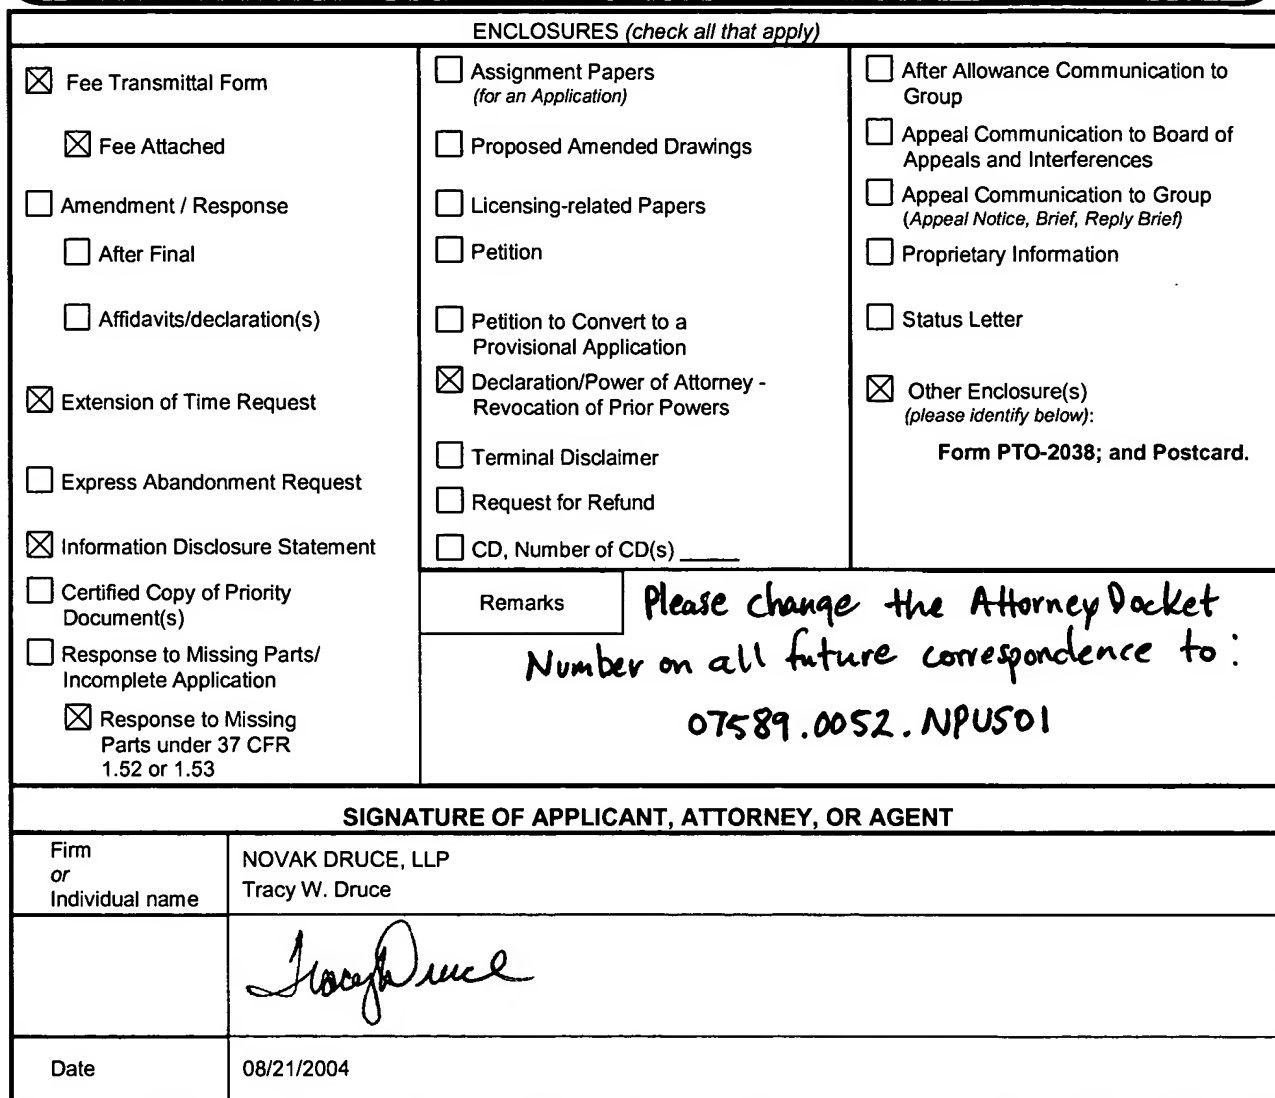 ENCLOSURES (check all that apply)
Fee Transmittal Form
Fee Attached
Amendment / Response
After Final
Affidavits/declaration(s)
Extension of Time Request
Express Abandonment Request
Information Disclosure Statement
Certified Copy of Priority
Document(s)
Response to Missing Parts/
Incomplete Application
Response to Missing
Parts under 37 CFR
1.52 or 1.53
Assignment Papers
(for an Application)
Proposed Amended Drawings
Licensing-related Papers
Petition
Petition to Convert to a
Provisional Application
Declaration/Power of Attorney -
Revocation of Prior Powers
Terminal Disclaimer
Request for Refund
CD, Number of CD(s) _____
After Allowance Communication to
Group
Appeal Communication to Board of
Appeals and Interferences
Appeal Communication to Group
(Appeal Notice, Brief, Reply Brief)
Proprietary Information
Status Letter
Other Enclosure(s)
(please identify below):
Form PTO-2038; and Postcard.
Remarks
Please change the Attorney Docket
Number on all future correspondence to:
07589.0052.NPUS01
SIGNATURE OF APPLICANT, ATTORNEY, OR AGENT
Firm
or
Individual name
NOVAK DRUCE, LLP
Tracy W. Druce
Tracy W Druce
Date
08/21/2004